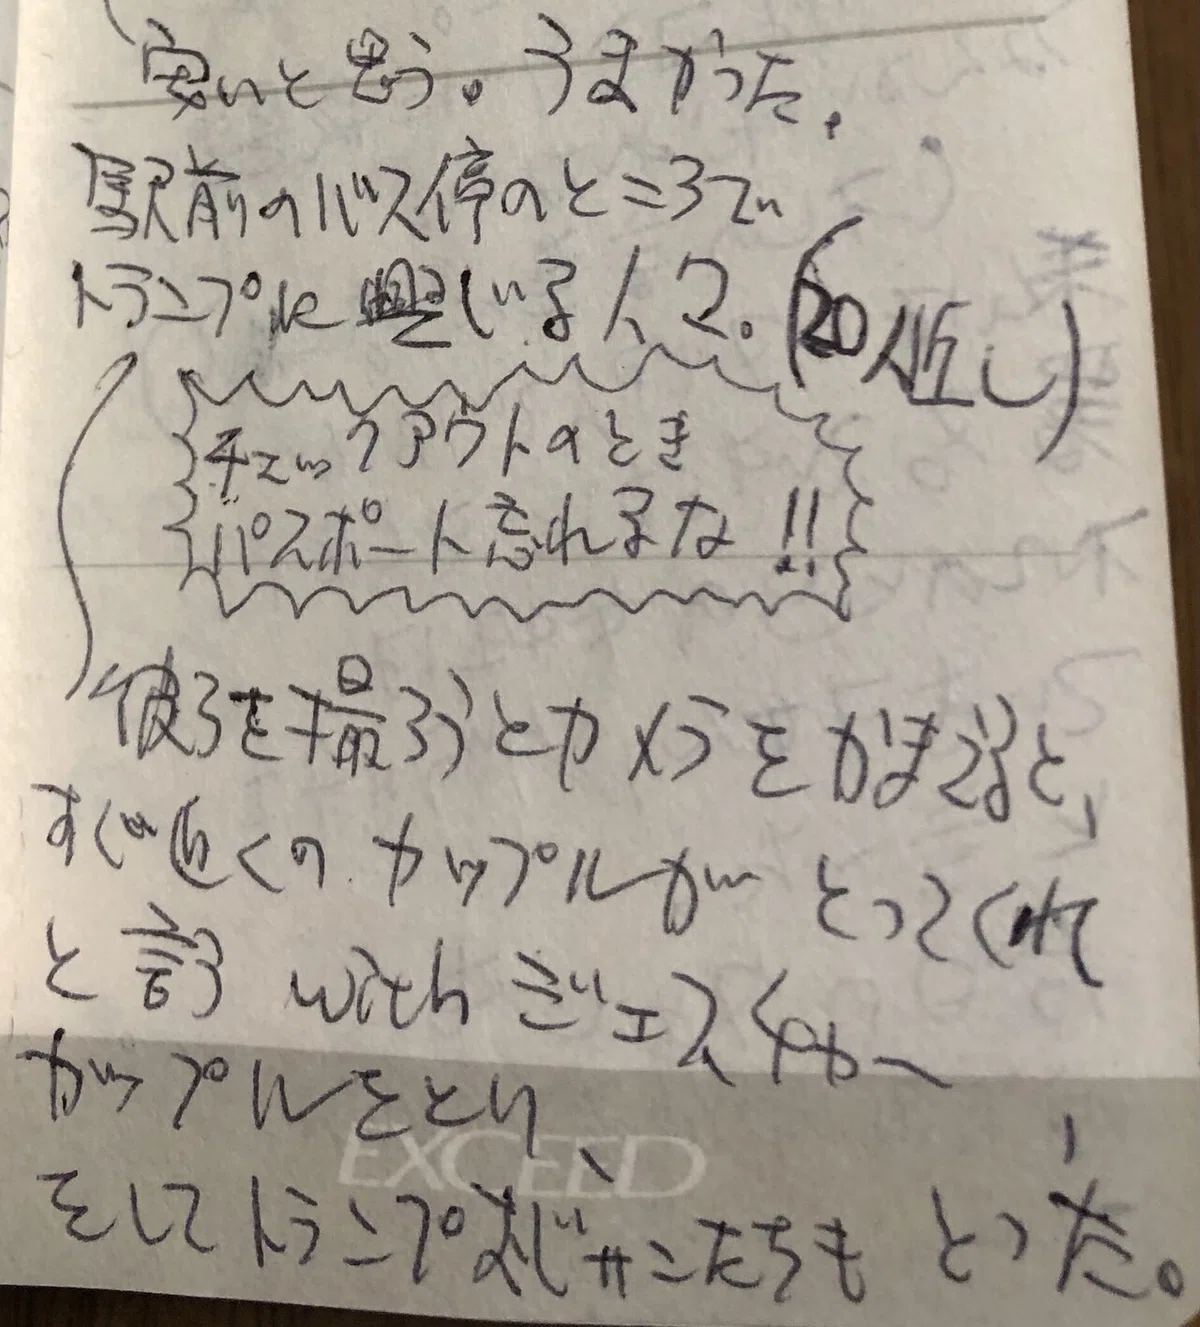 安いと思う。うまかった。
駅前のバス停のところで
トランプに興じいる人々。(20人近し)
チェックアウトのとき
パスポート忘れるな!!
彼らを撮ろうとカメラをかまえると、
すぐ近くのカップルが とってくれ
と言う with ジェスくやかー
カップルをとり、
そしてトランプおじサンたちも とった。
EXCEED